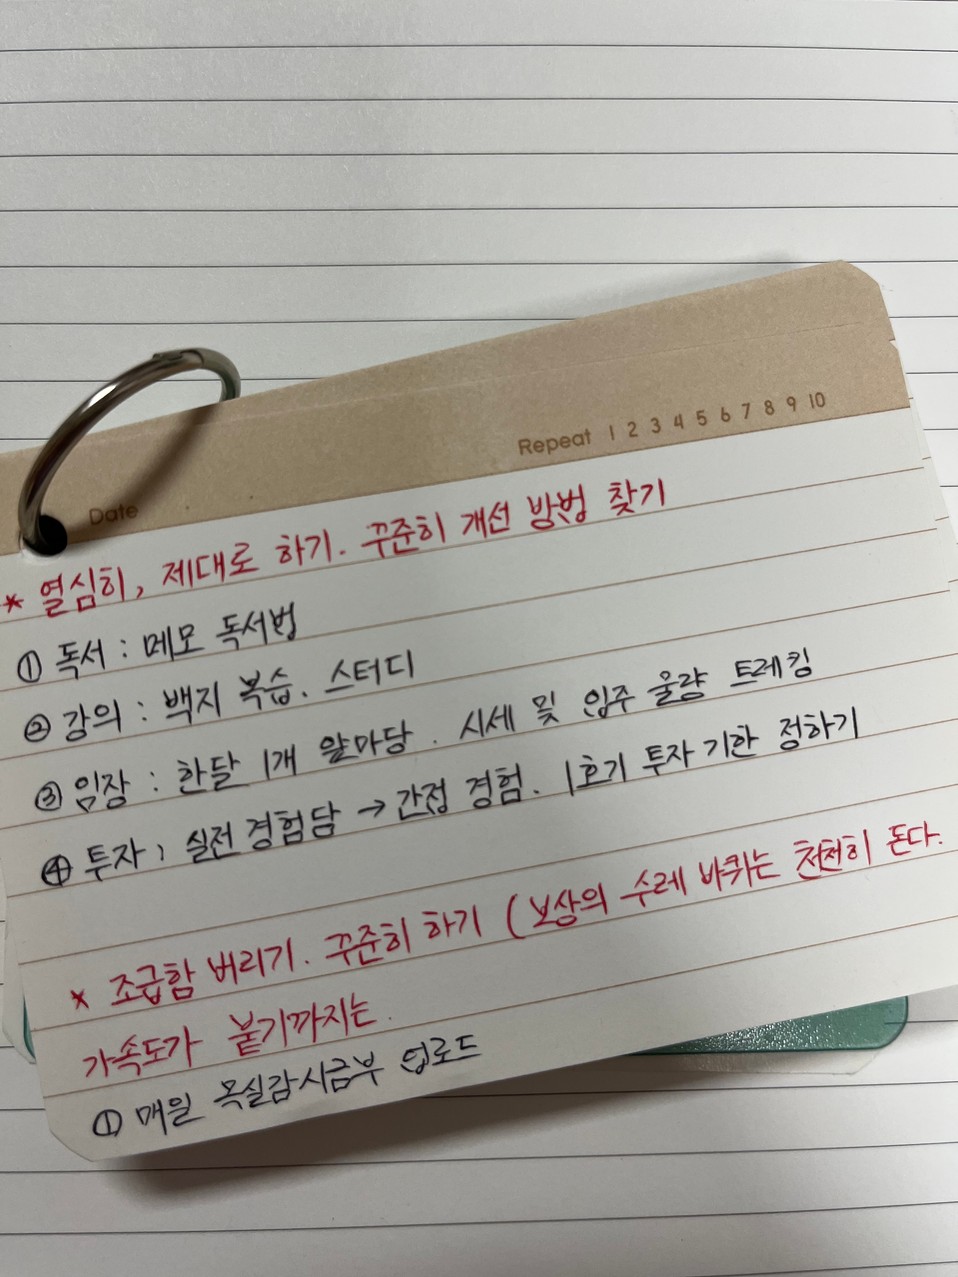 Repeat 1 2 3 4 5 6 7 8 9 10
Date
* 열심히, 제대로 하기. 꾸준히 개선 방법 찾기
① 독서 : 메모 독서법
② 강의 : 백지 복습. 스터디
③ 임장 : 한달 1개 앞마당. 시세 및 입주 물량 트레킹
④ 투자 : 실전 경험담 → 간접 경험. 1호기 투자 기한 정하기
* 조급함 버리기. 꾸준히 하기 (보상의 수레 바퀴는 천천히 돈다.
가속도가 붙기까지는.
① 매일 목실감시금부 업로드